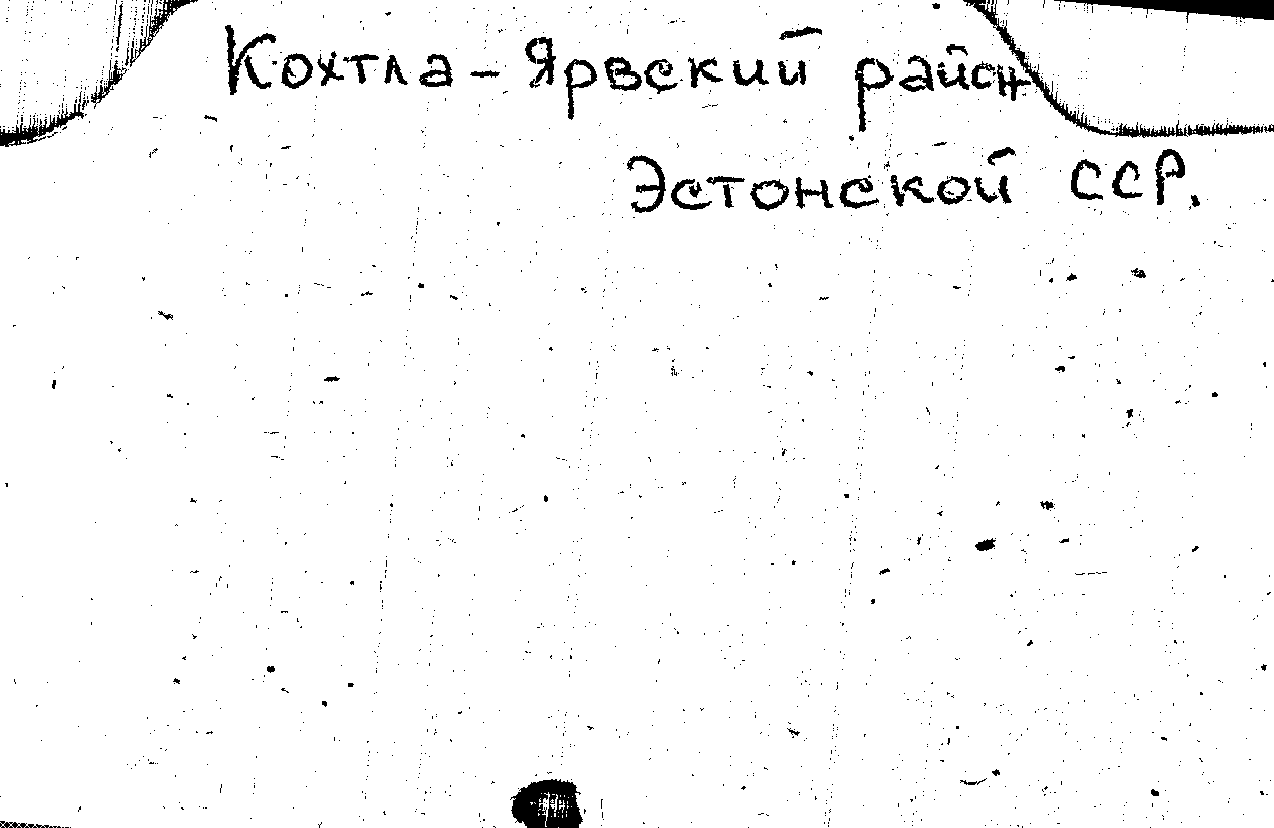 Кохтла-Ярвский район
Эстонской ССР.